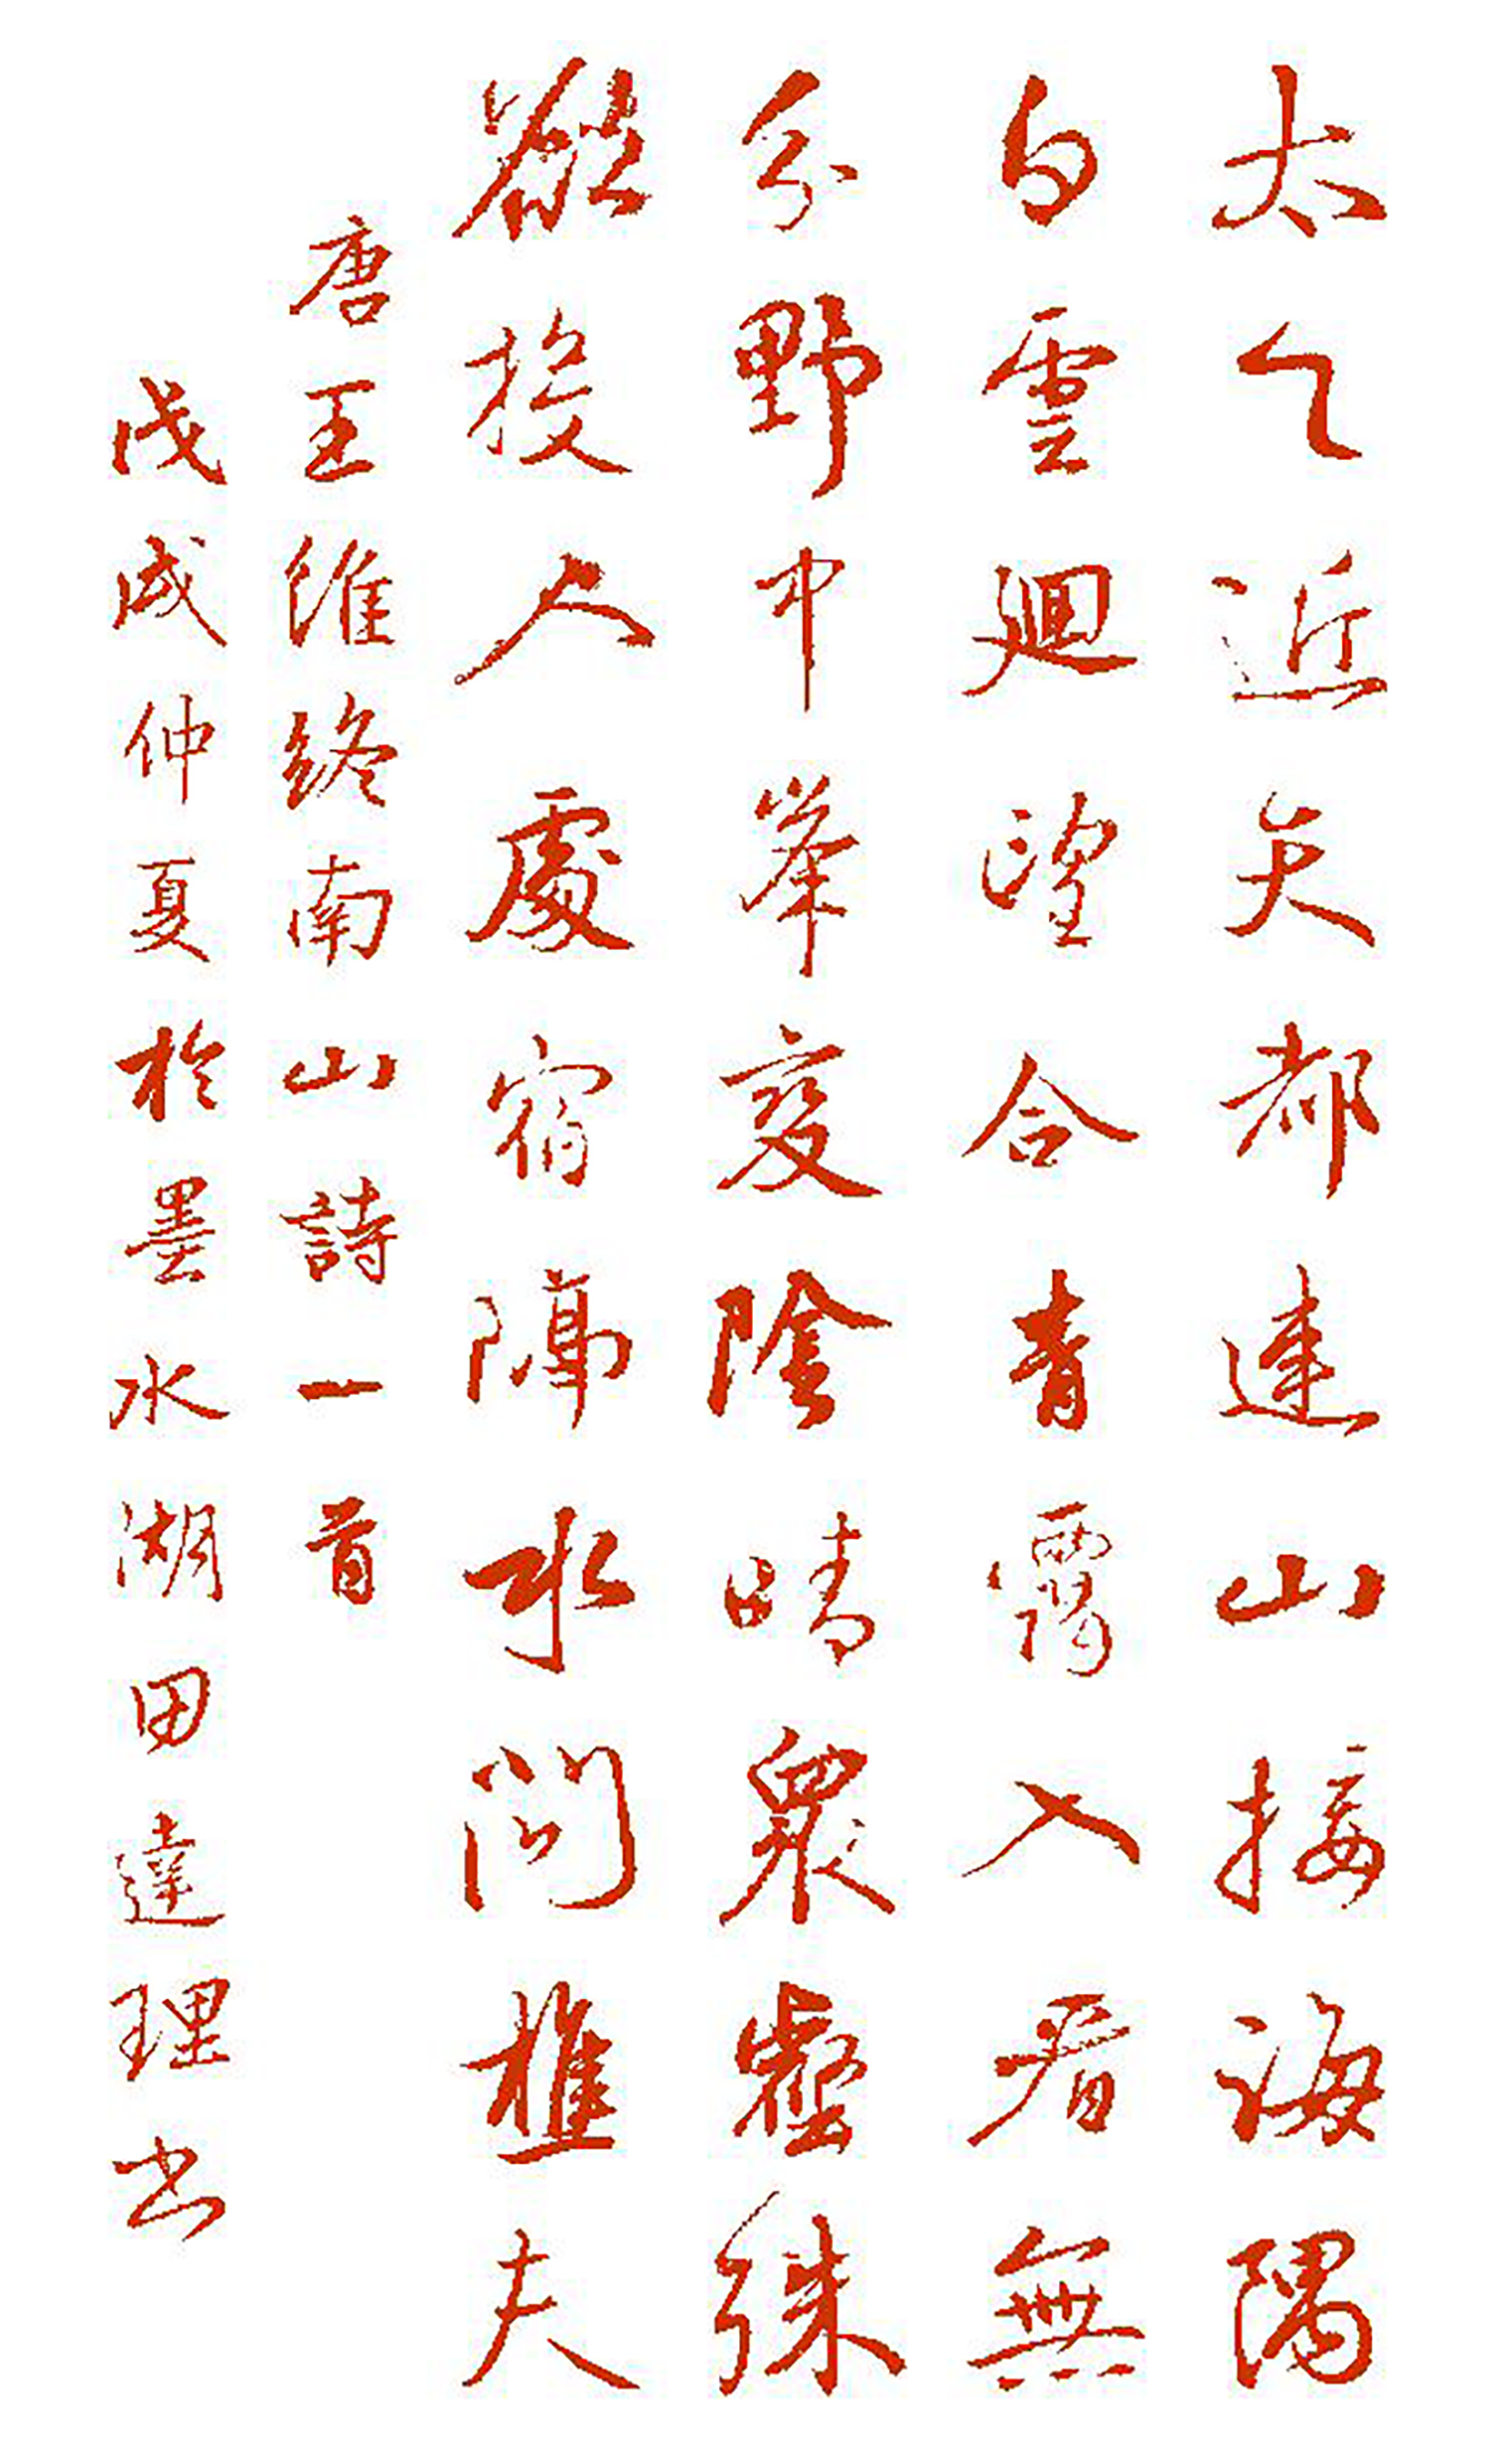 太乙近天都連山接海隅
白雲廻望合青靄入看無
分野中峯變陰晴衆壑殊
欲投人處宿隔水問樵夫
唐王維終南山詩一首
戊戌仲夏於墨水湖田達理书